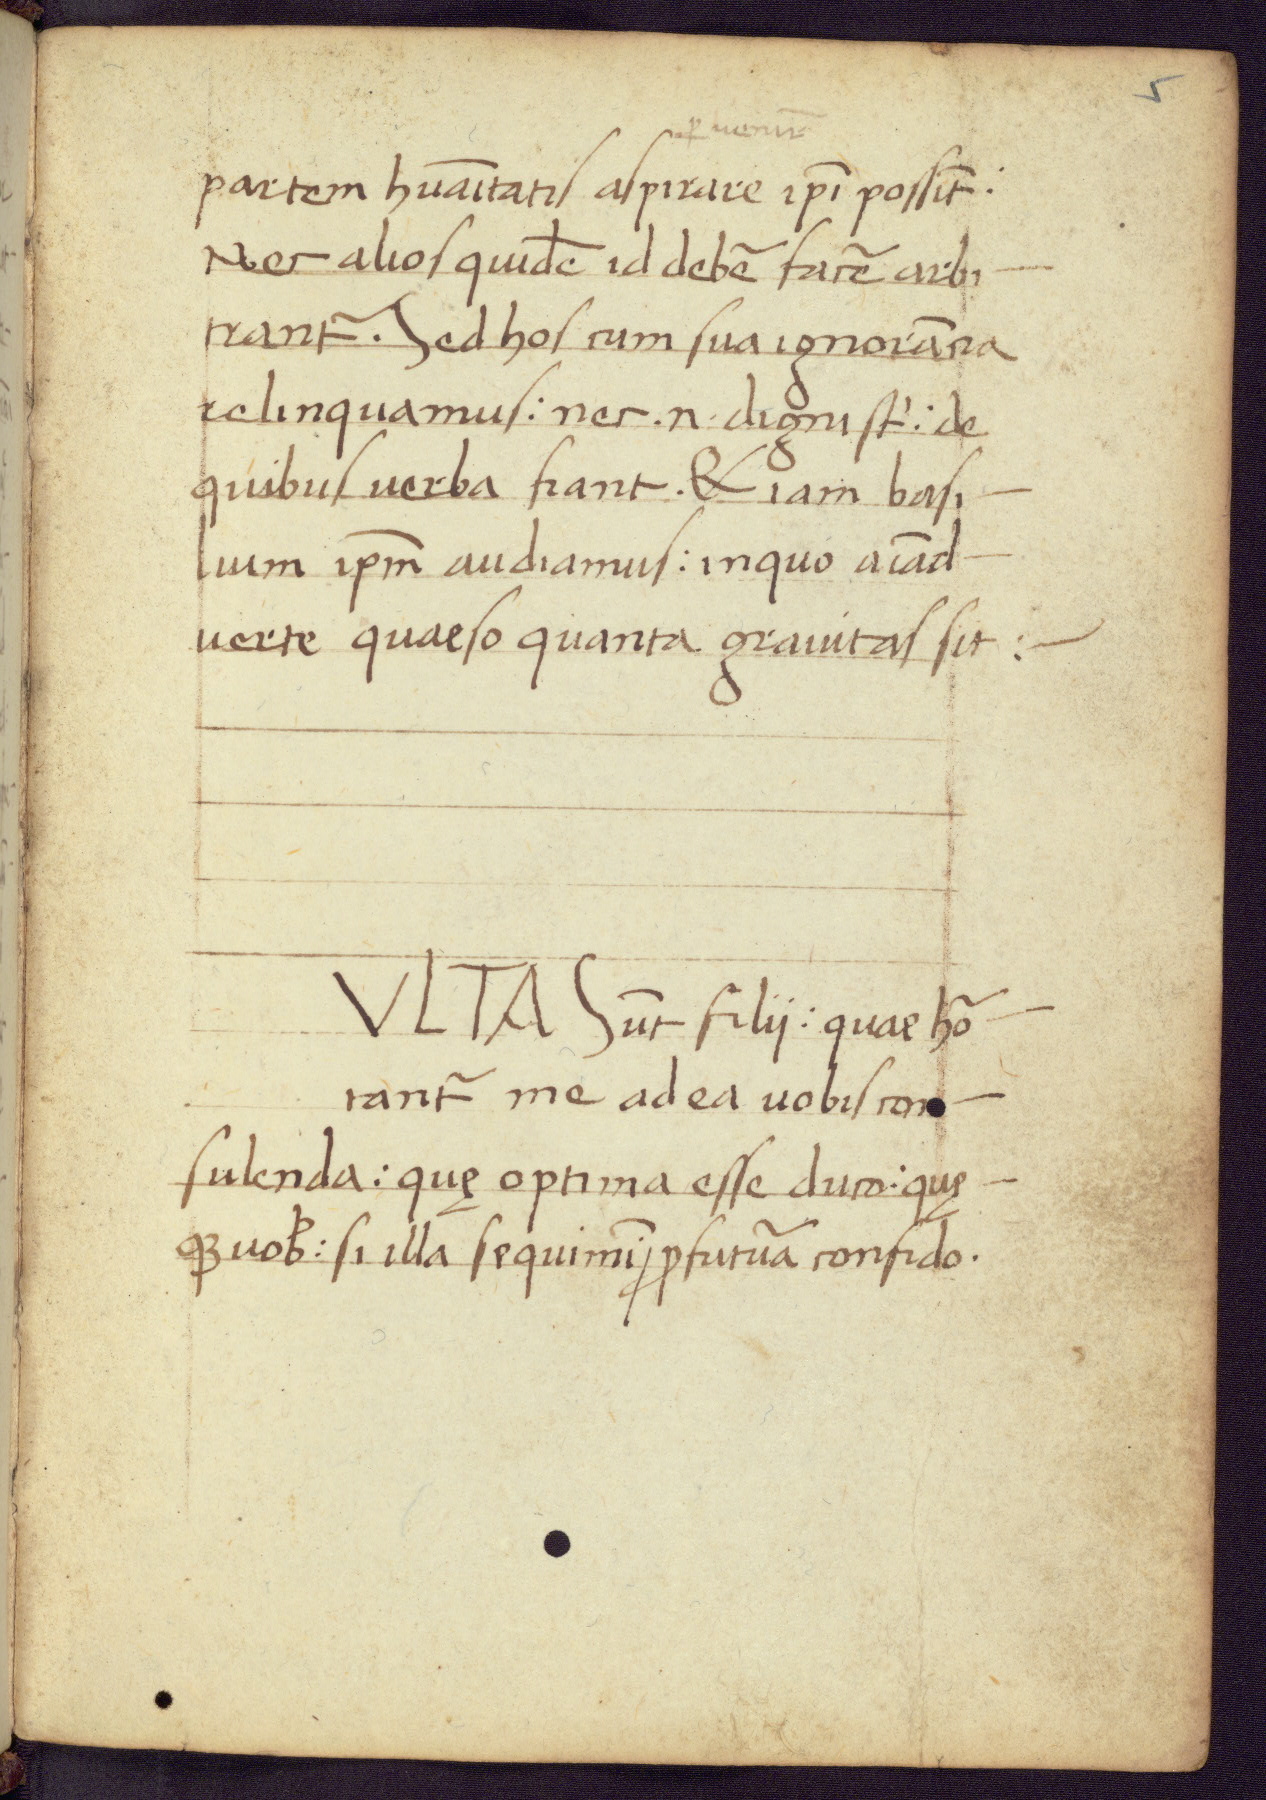 5
ꝑuenir̃
partem huãitatis aspirare ip̃i possĩt:
Nec alios quidẽ id debẽ facẽ arbi—
trant̃. Sed hos cum sua ignorãcia
relinquamus: nec .n. digni st̃: de
quibus uerba fiant. & iam basi—
lium ip̃m audiamus: inquo aĩad—
uerte quaeso quanta grauitas sit:—
VLTA Sũt filij: quae hõ—
tant̃ me ad ea uobis con—
sulenda: quę optima esse duco: quę—
qꝫ uob̃: si illa sequimĩ ꝓfutũa confido.